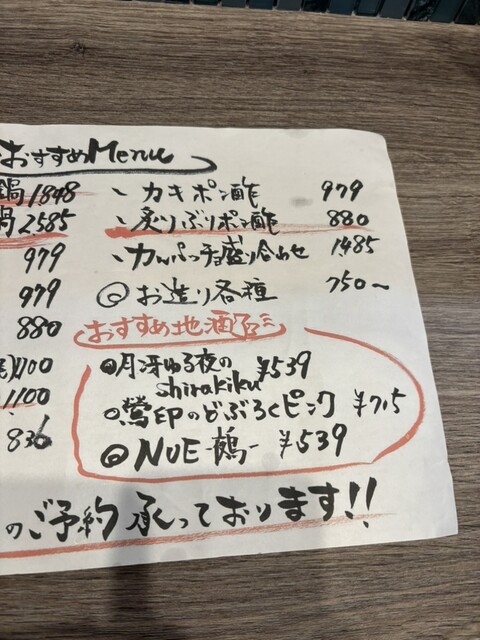 おすすめMenu
鍋 1848
鍋 2,585
979
979
880
1100
1,100
836
、カキポン酢 979
、炙りぶりポン酢 880
、カルパッチョ盛り合わせ 1,485
◎お造り各種 750~
おすすめ地酒
◎月冴ゆる夜の
shirakiku ¥539
◎鶯印のどぶろくピンク ¥715
◎NUE-鵺- ¥539
のご予約承っております!!